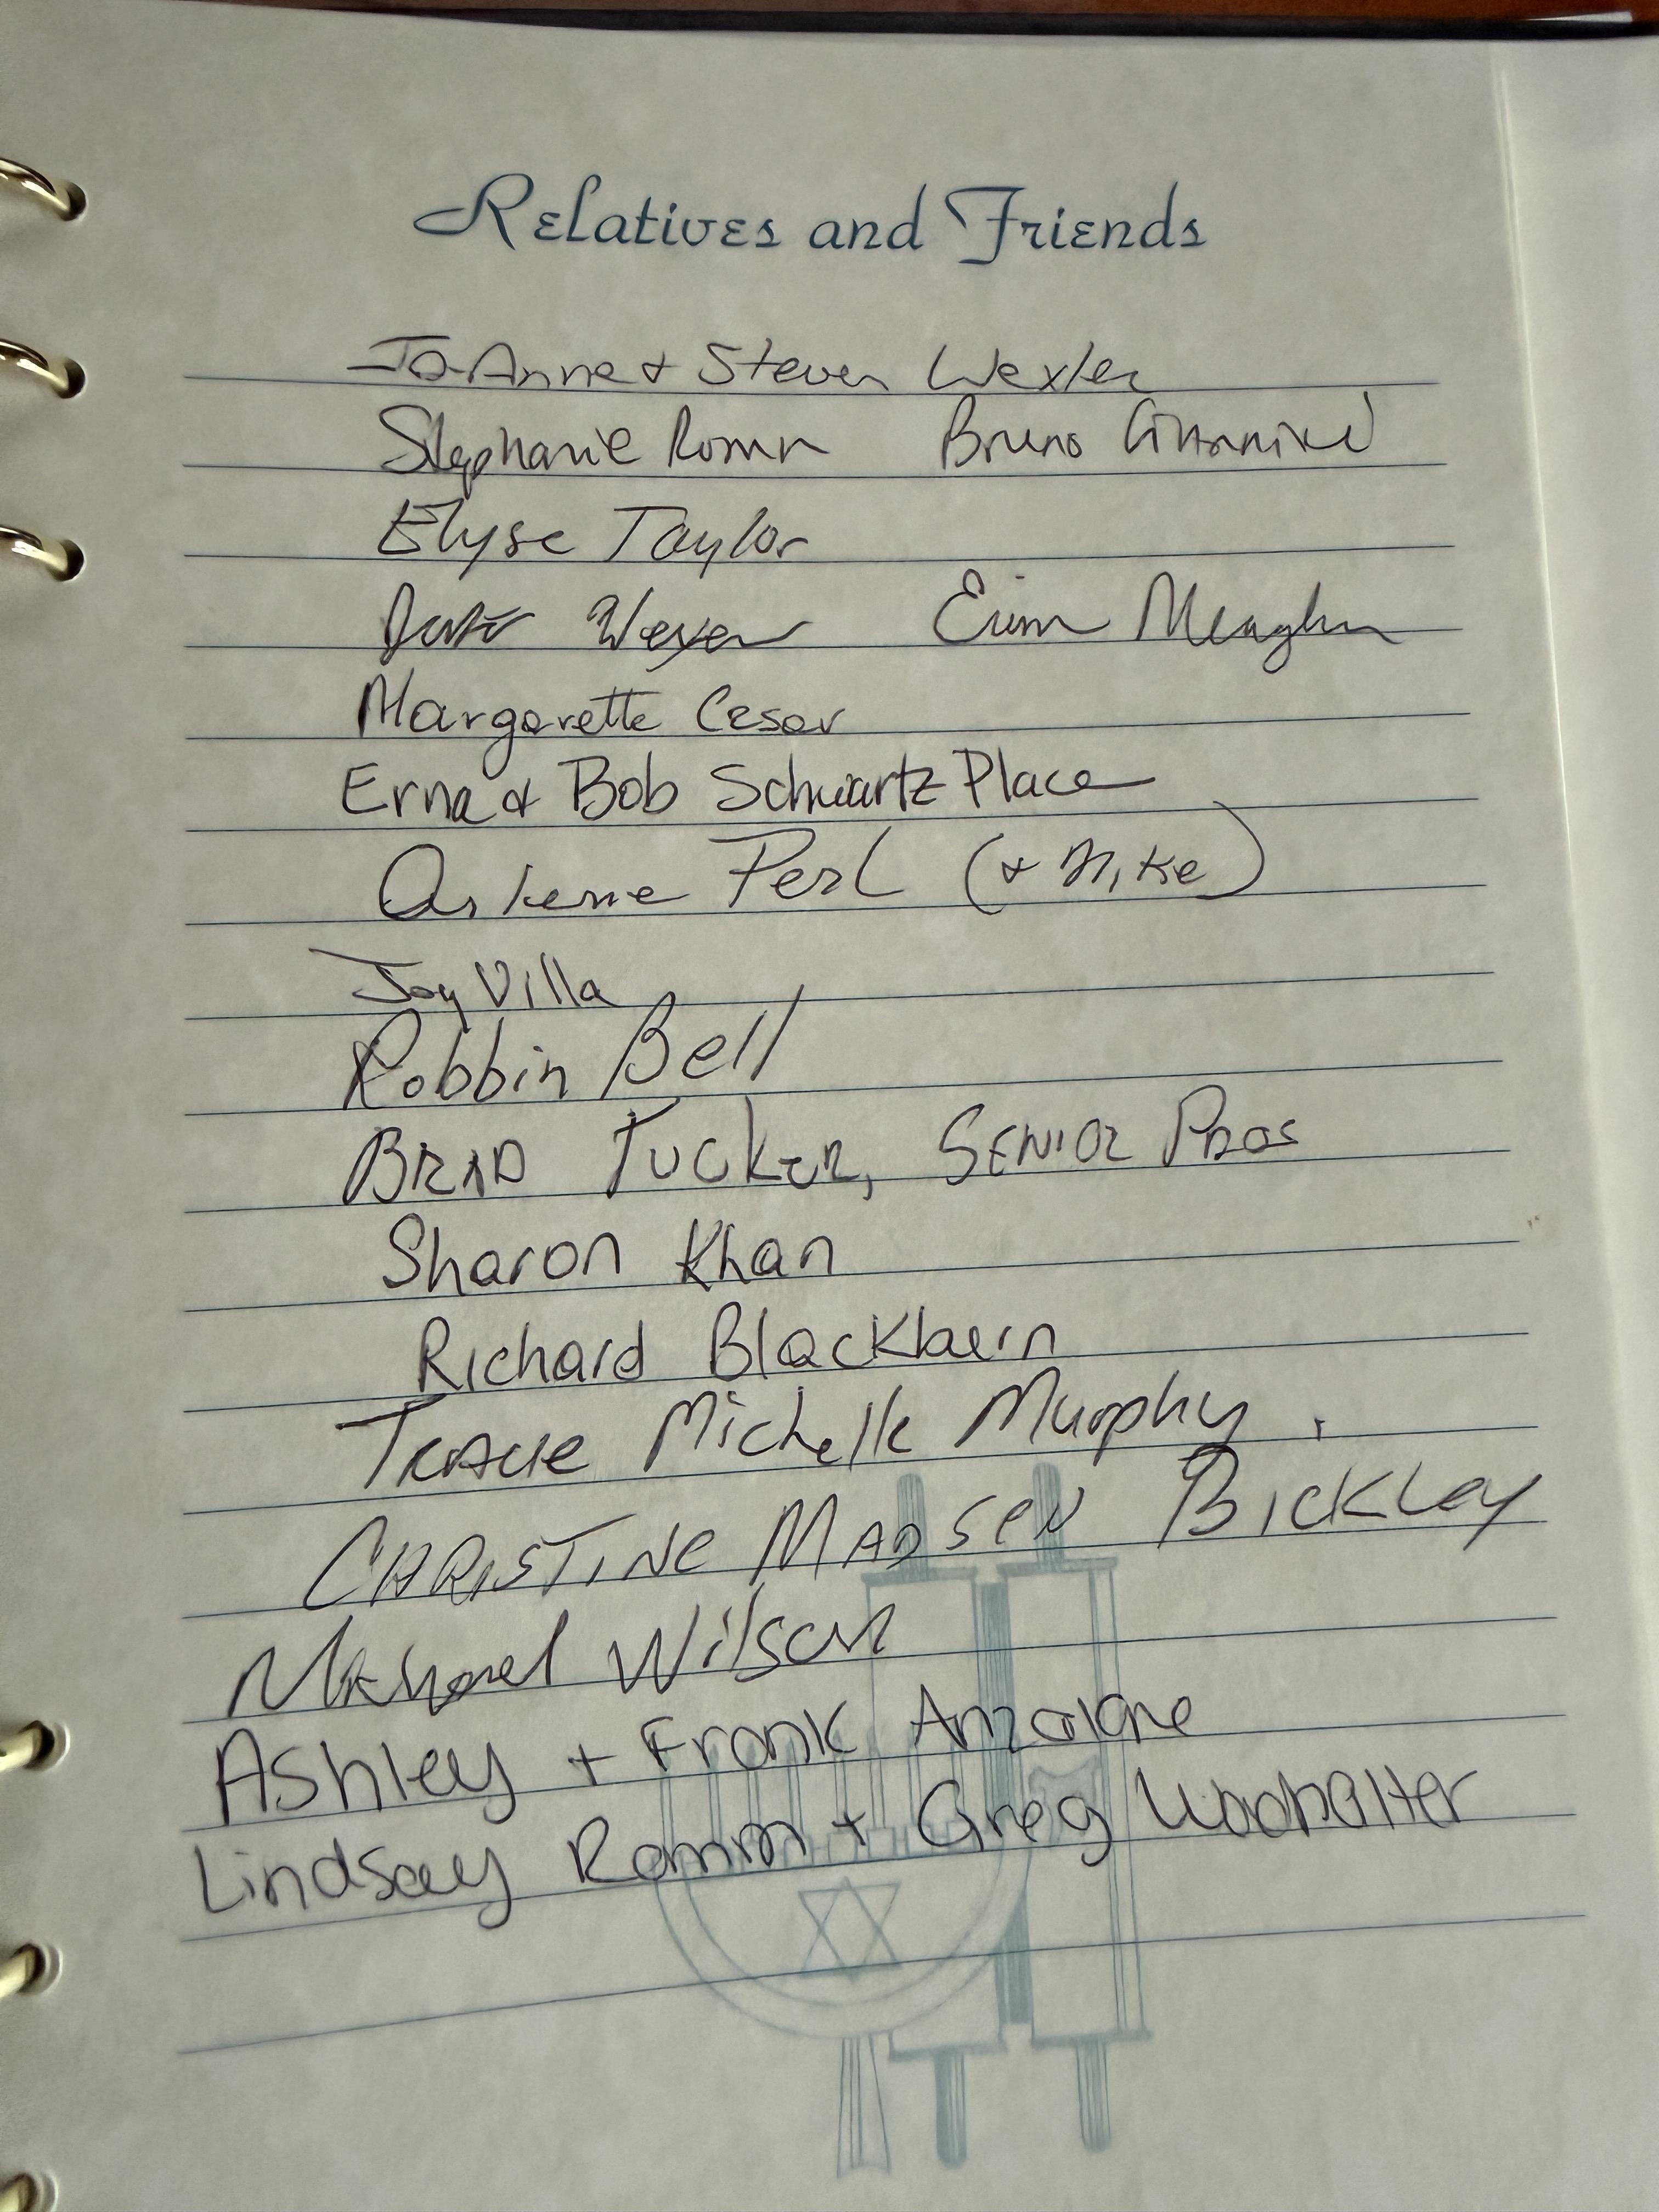 Relatives and Friends
Jo-Anne & Steven Wexler
Stephanie Romm Bruno
Elyse Taylor
Erin Meagher
Margarette Cesar
Erna & Bob Schwartz Place
Arlene Perl (& Mike)
Joy Villa
Robbin Bell
BRAD TUCKER, SENIOR PROS
Sharon Khan
Richard Blackburn
TRACIE Michelle Murphy
CHRISTINE MADSEN BICKLEY
Michael Wilson
Ashley + Frank Anzalone
Lindsay Romm + Greg